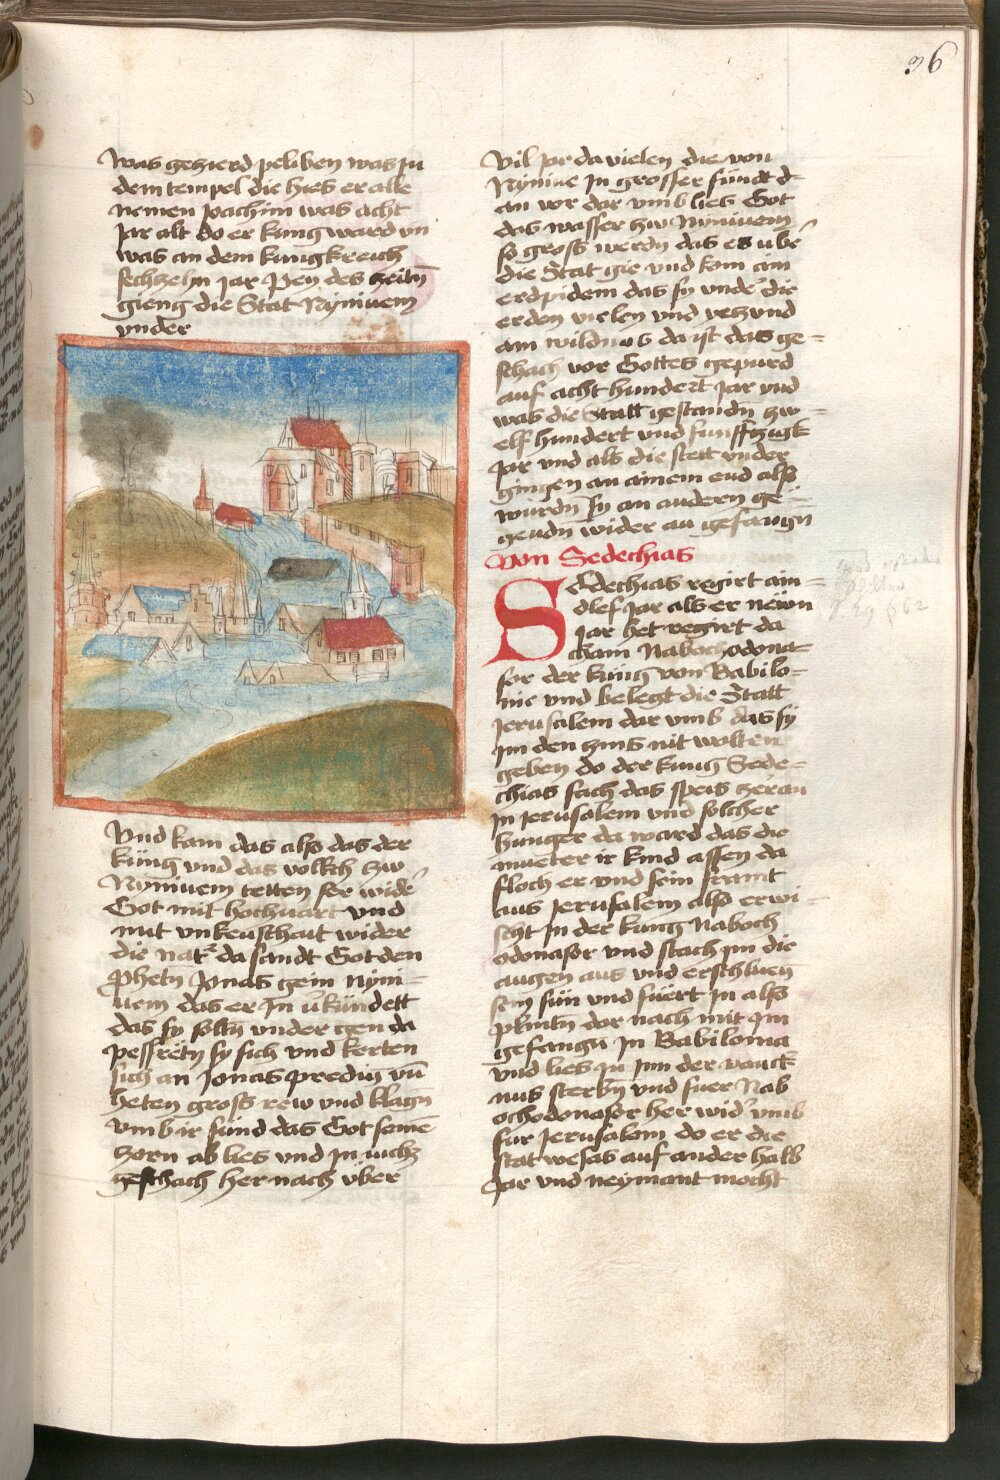 36
was gezierd peliben was in
dem tempel die hies er alle
nemen Joachim was acht
Jar alt do er kung ward vn
was an dem kungkreich
sechzehn Jar Pey des zeitn
gieng die Stat Nyniuem
vnder
Vnd kam das also das der
küng vnd das volkch zw
Nyniuem tetten ser wide
Got mit hochuart vnd
mit vnkeuschait wider
die nat da sandt Got den
phetn Jonas gein Nyni-
uem das er In ukündett
das sy soltn vnder gen da
pessretn sy sich vnd kerten
sich an Jonas predig vn
heten gross rew vnd klagn
vmb ir sünd das Got seine
zorn ab lies vnd In nichz
geschach her nach vber
vil Jar da vielen die von
Nyniue In grosser sündt d
an vor dar vmb lies Got
das wasser zw Nyniuem
so gross werdn das es ube
die Stat gie vnd kom ain
erdpidem das sy vnde die
erden vielen vnd yezund
ain wildnus da ist das ge-
schach vor Gottes gepurd
auf acht hundert Jar vnd
was die Statt gestandn zw
elf hundert vnd funffzigk
Jar vnd als die stett vnder
gingen an ainem end also
wurdn sy an andern ge
gendn wider an gefangn
Von Sedechias
Sedechias regirt ain-
dlef Jar als er newn
Jar het regirt da
cham Nabochodona-
sor der küng von Babilo-
nie vnd belegt die Statt
Jerusalem dar vmb das sy
im den zins nit wolten
geben do der kung Sede-
chias sach das speis zeran
in Jerusalem vnd solcher
hunger da ward das die
mueter ir kind assen da
floch er vnd sein framt
aus Jerusalem also erwi-
scht In der kung Naboch
odonasor vnd stach im die
augen aus vnd erschluen
sein sün vnd füert In also
plintn dar nach mit Im
gefangn In Babilonia
vnd lies In Im der vanck
nus sterbn vnd fuer Nab
ochodonasor her wid vmb
fur Jerusalem do er die
stat wesas auf ander halb
Jar vnd neymant mocht